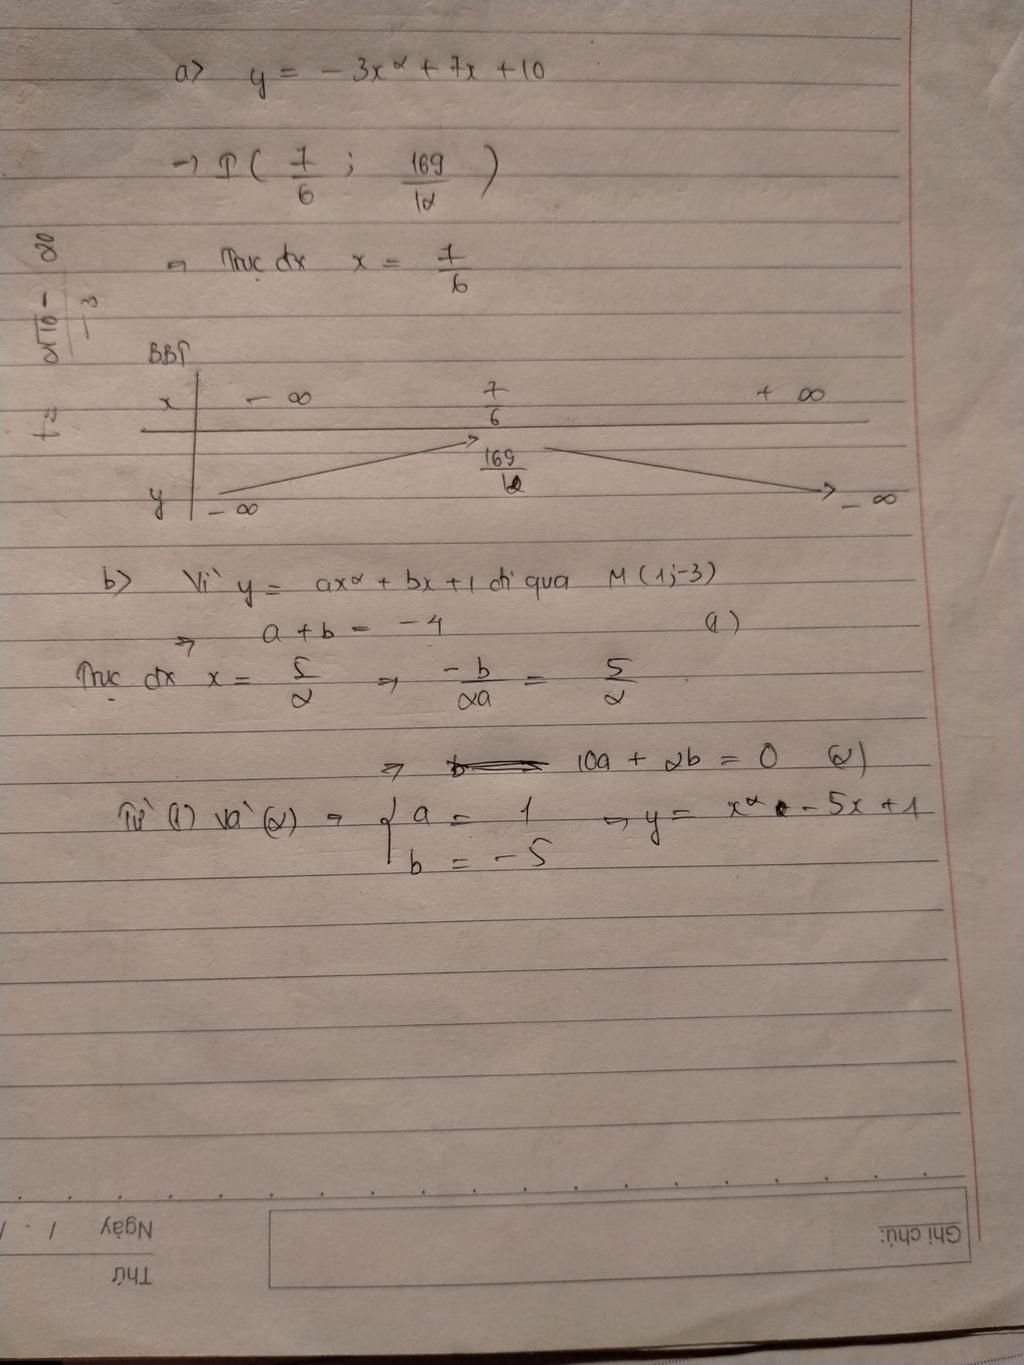 a> y = -3x² + 7x + 10
→ I ( 7/6 ; 169/12 )
→ Trục đx x = 7/6
BBT
x | -∞ 7/6 +∞
y | -∞ 169/12 -∞
b> Vì y = ax² + bx + 1 đi qua M (1;-3)
⇒ a + b = -4 (1)
Trục đx x = 5/2 ⇒ -b/2a = 5/2
⇒ 10a + 2b = 0 (2)
Từ (1) và (2) ⇒ { a = 1 ⇒ y = x² - 5x + 1
b = -5
Ghi chú:
Ngày / .
Thứ